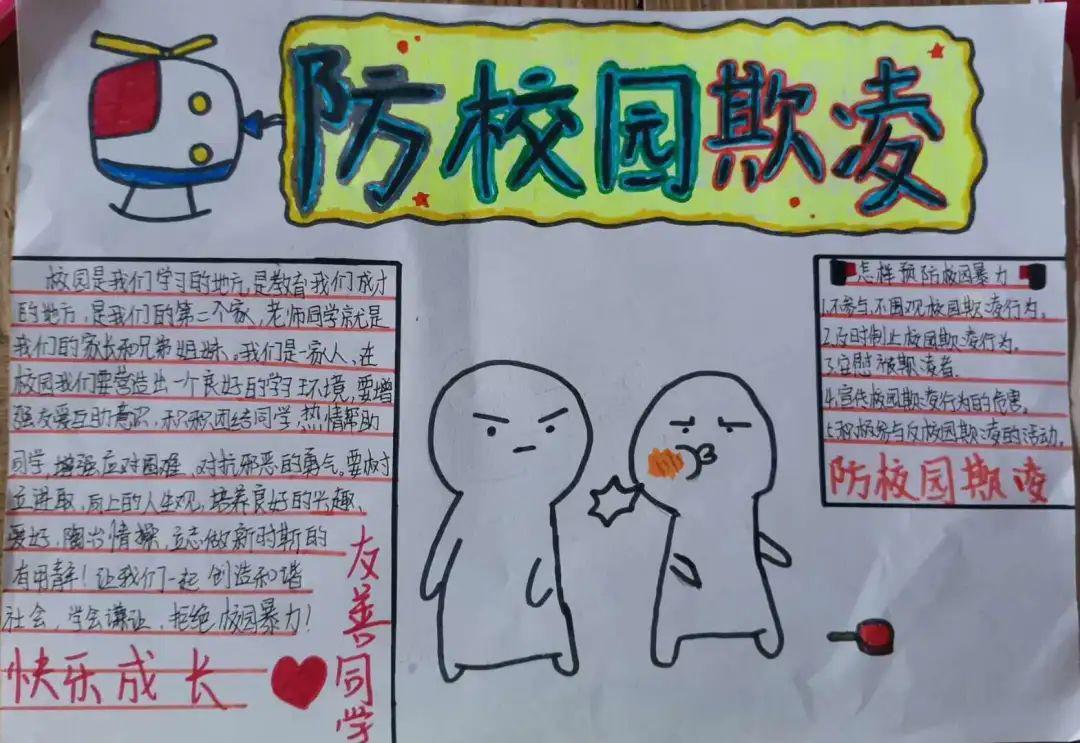 防校园欺凌
校园是我们学习的地方,是教育我们成才
的地方,是我们的第二个家,老师同学就是
我们的家长和兄弟姐妹。我们是一家人、在
校园我们要营造出一个良好的学习环境,要增
强友爱互助意识,积极团结同学,热情帮助
同学,增强应对困难、对抗邪恶的勇气。要树
立进取、向上的人生观,培养良好的兴趣、
爱好,陶冶情操,立志做新时期的
有用青年!让我们一起创造和谐
社会,学会谦让,拒绝校园暴力!
快乐成长
友善同学
怎样预防校园暴力
1.不参与、不围观校园欺凌行为。
2.及时制止校园欺凌行为。
3.安慰被欺凌者.
4.宣传校园欺凌行为的危害。
5.积极参与反校园欺凌的活动.
防校园欺凌